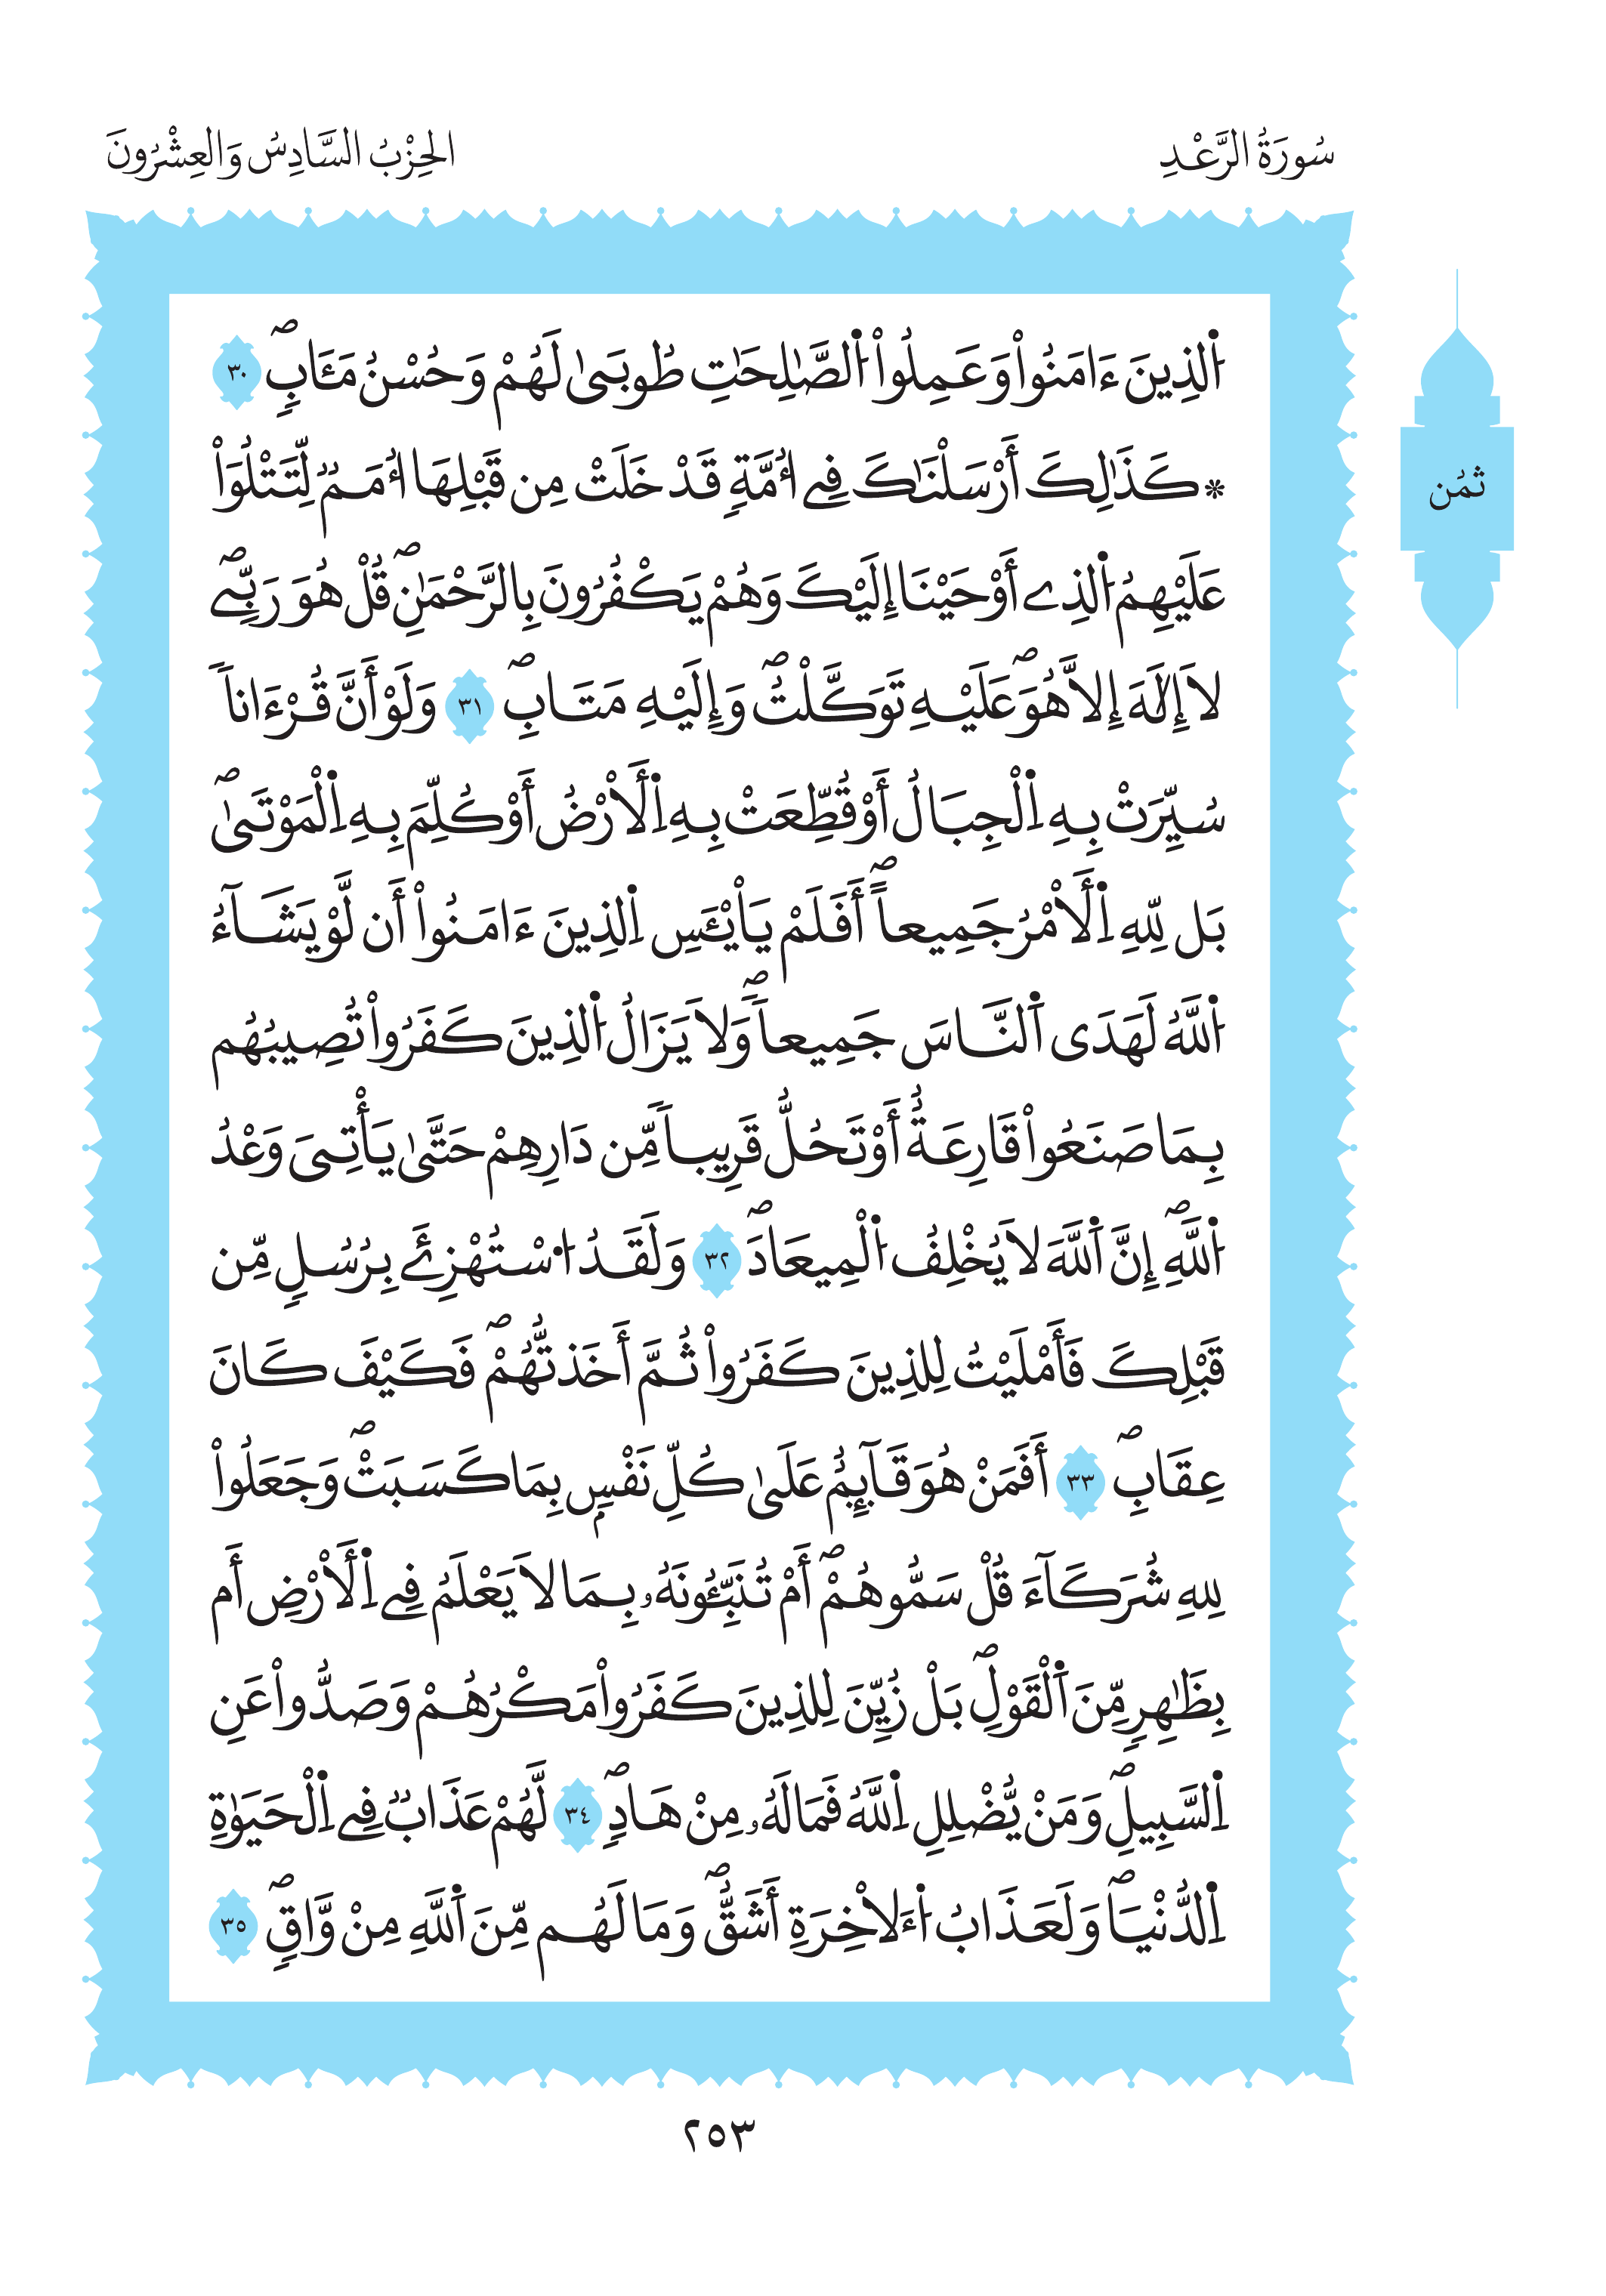 سُورَةُ الرَّعْدِ
الحِزْبُ السَّادِسُ وَالعِشْرُونَ
ثمُن
اُ۬لذِينَ ءَامَنُواْ وَعَمِلُواْ اُ۬لصَّٰلِحَٰتِ طُوبَىٰ لَهُمْ وَحُسْنُ مَـَٔابٖۖ ٣٠
* كَذَٰلِكَ أَرْسَلْنَٰكَ فِےٓ أُمَّةٖ قَدْ خَلَتْ مِن قَبْلِهَآ أُمَمٞ لِّتَتْلُوَاْ
عَلَيْهِمُ اُ۬لذِےٓ أَوْحَيْنَآ إِلَيْكَ وَهُمْ يَكْفُرُونَ بِالرَّحْمَٰنِۖ قُلْ هُوَ رَبِّےۖ
لَآ إِلَٰهَ إِلَّا هُوَۖ عَلَيْهِ تَوَكَّلْتُۖ وَإِلَيْهِ مَتَابِۖ ٣١ وَلَوْ أَنَّ قُرْءَاناٗ
سُيِّرَتْ بِهِ اِ۬لْجِبَالُ أَوْ قُطِّعَتْ بِهِ اِ۬لَارْضُ أَوْ كُلِّمَ بِهِ اِ۬لْمَوْتَىٰۖ
بَل لِّلهِ اِ۬لَامْرُ جَمِيعاًۖ أَفَلَمْ يَاْيْـَٔسِ اِ۬لذِينَ ءَامَنُوٓاْ أَن لَّوْ يَشَآءُ
اُ۬للَّهُ لَهَدَى اَ۬لنَّاسَ جَمِيعاٗۖ وَلَا يَزَالُ اُ۬لذِينَ كَفَرُواْ تُصِيبُهُم
بِمَا صَنَعُواْ قَارِعَةٌ أَوْ تَحُلُّ قَرِيباٗ مِّن دَارِهِمْ حَتَّىٰ يَأْتِىَ وَعْدُ
اُ۬للَّهِۖ إِنَّ اَ۬للَّهَ لَا يُخْلِفُ اُ۬لْمِيعَادَۖ ٣٢ وَلَقَدُ اُ۟سْتُهْزِۓَ بِرُسُلٖ مِّن
قَبْلِكَ فَأَمْلَيْتُ لِلذِينَ كَفَرُواْ ثُمَّ أَخَذتُّهُمْۖ فَكَيْفَ كَانَ
عِقَابِۖ ٣٣ أَفَمَنْ هُوَ قَآئِمٌ عَلَىٰ كُلِّ نَفْسِۢ بِمَا كَسَبَتْۖ وَجَعَلُواْ
لِلهِ شُرَكَآءَ قُلْ سَمُّوهُمْۖ أَمْ تُنَبِّـُٔونَهُۥ بِمَا لَا يَعْلَمُ فِے اِ۬لَارْضِ أَم
بِظَٰهِرٖ مِّنَ اَ۬لْقَوْلِۖ بَلْ زُيِّنَ لِلذِينَ كَفَرُواْ مَكْرُهُمْ وَصَدُّواْ عَنِ
اِ۬لسَّبِيلِۖ وَمَنْ يُّضْلِلِ اِ۬للَّهُ فَمَا لَهُۥ مِنْ هَادٖۖ ٣٤ لَّهُمْ عَذَابٞ فِے اِ۬لْحَيَوٰةِ
اِ۬لدُّنْيَاۖ وَلَعَذَابُ اُ۬لَاخِرَةِ أَشَقُّۖ وَمَا لَهُم مِّنَ اَ۬للَّهِ مِنْ وَّاقٖۖ ٣٥
٢٥٣